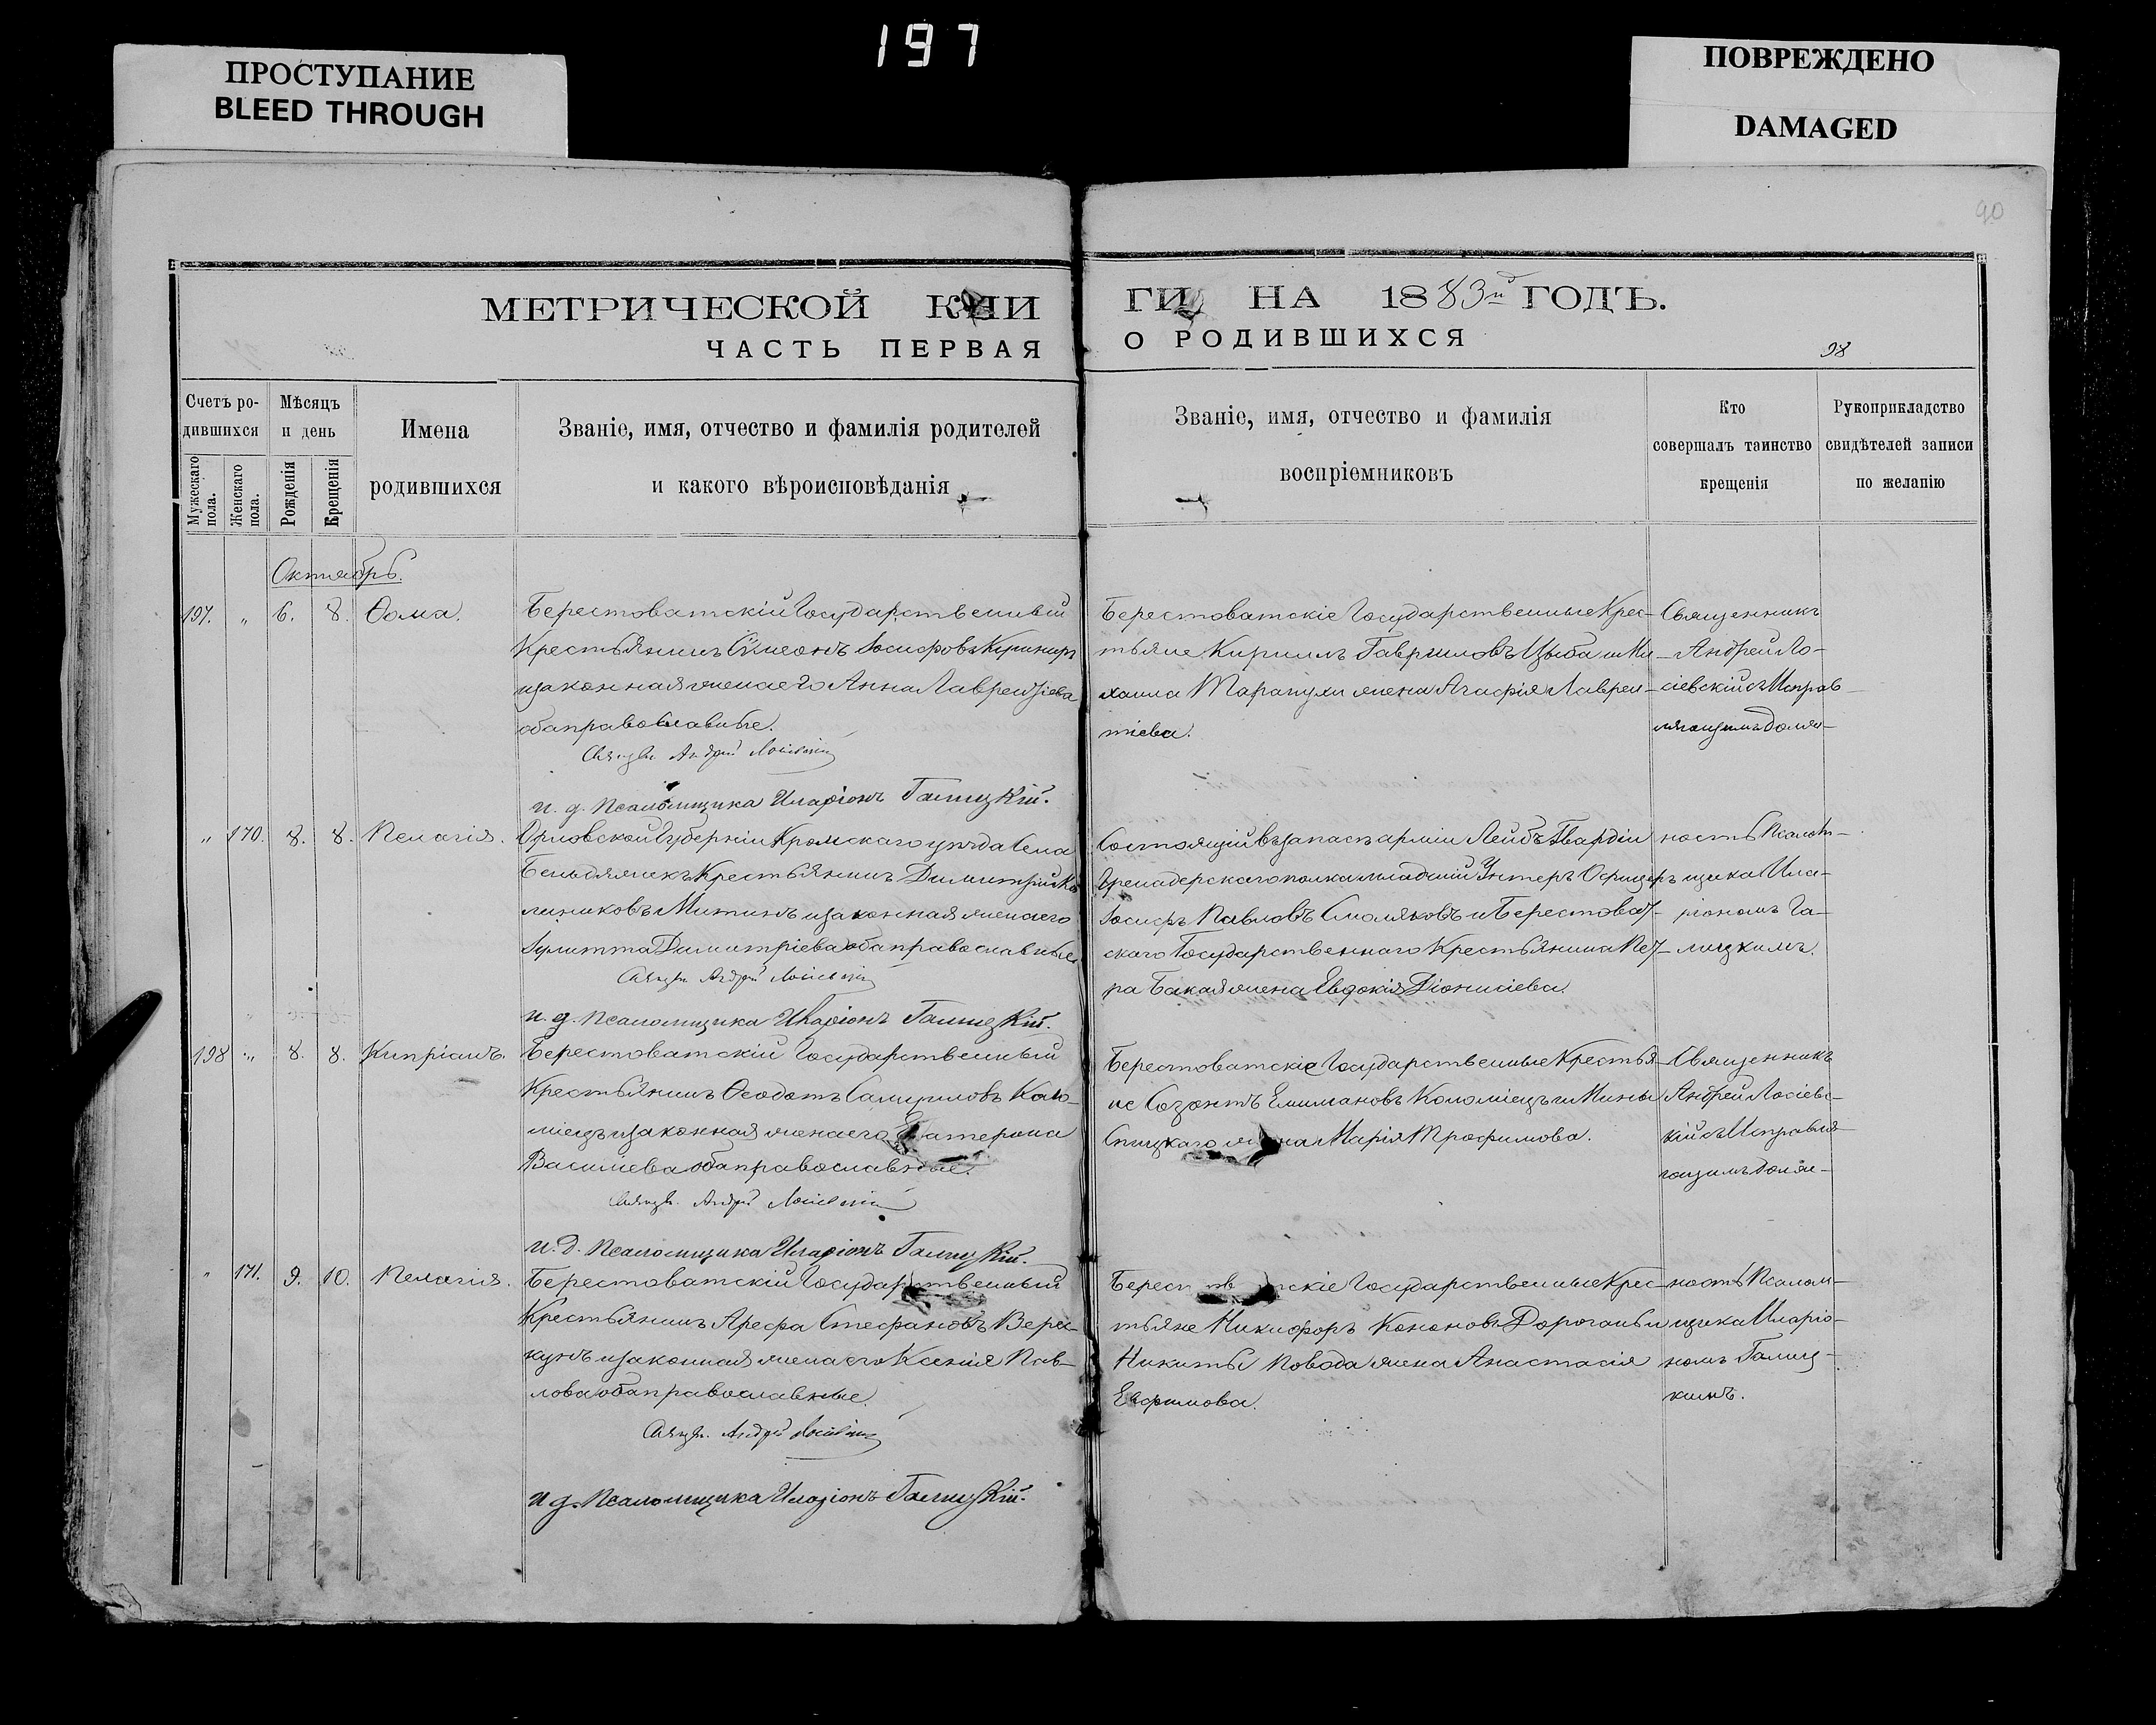 197
ПРОСТУПАНИЕ
BLEED THROUGH
ПОВРЕЖДЕНО
DAMAGED
90
МЕТРИЧЕСКОЙ КНИ
ЧАСТЬ ПЕРВАЯ
ГИ НА 1883й ГОДЪ.
О РОДИВШИХСЯ
98
Счетъ ро-
дившихся
Мужескаго пола.
Женскаго пола.
Мѣсяцъ
и день
Рожденія
Крещенія
Имена
родившихся
Званіе, имя, отчество и фамилія родителей
и какого вѣроисповѣданія
Званіе, имя, отчество и фамилія
воспріемниковъ
Кто
совершалъ таинство
крещенія
Рукоприкладство
свидѣтелей записи
по желанію
Октябрь.
197. " 6. 8. Ѳома.
Берестоватскій Государственный
Крестьянинъ Сѵмеонъ Іосифовъ
и законная жена его Анна Лаврентіева
оба православные.
Священ. Андрей Лосіевскій
и. д. Псаломщика Иларіонъ Галицкій.
Берестоватскіе Государственные Крес-
тьяне Кириллъ Гавриловъ Цыба и Ми-
хаила Тарапухи жена Агафія Лаврен-
тіева.
Священникъ
Андрей Ло-
сіевскій съ Исправ
ляющимъ долж-
" 170. 8. 8. Пелагія.
Орловской Губерніи Кромскаго уѣзда Села
Крестьянинъ Димитрій
Митинъ и законная жена его
Іулитта Димитріева оба православные
Священ. Андрей Лосіевскій
и. д. Псаломщика Иларіонъ Галицкій.
Состоящій въ запасѣ арміи Лейбъ Гвардіи
Гренадерскаго полка младшій Унтеръ Офицеръ
Іосифъ Павловъ Смоляковъ и Берестоват-
скаго Государственнаго Крестьянина Пет-
ра Бакая жена Евдокія Діонисіева.
ность Псалом-
щика Ила-
ріономъ Га-
лицкимъ.
198 " 8. 8. Кипріанъ.
Берестоватскій Государственный
Крестьянинъ Ѳеодотъ Самуиловъ Коло-
міецъ и законная жена его Екатерина
Василіева оба православные.
Священ. Андрей Лосіевскій
и. д. Псаломщика Иларіонъ Галицкій.
Берестоватскіе Государственные Крестья-
не Созонтъ Коломіецъ и Мины
Спицкаго жена Марія Трофимова.
Священникъ
Андрей Лосіевс-
кій съ Исправля-
ющимъ долж-
" 171. 9. 10. Пелагія.
Берестоватскій Государственный
Крестьянинъ Арефа Стефановъ Верес-
кунъ и законная жена его Ксенія Пав-
лова оба православные.
Священ. Андрей Лосіевскій
и д. Псаломщика Иларіонъ Галицкій.
Берестоватскіе Государственные Крес-
тьяне Никифоръ Кононовъ Дорогань и
Никиты Повода жена Анастасія
Евфимова.
ность Псалом-
щика Иларіо-
номъ Галиц-
кимъ.